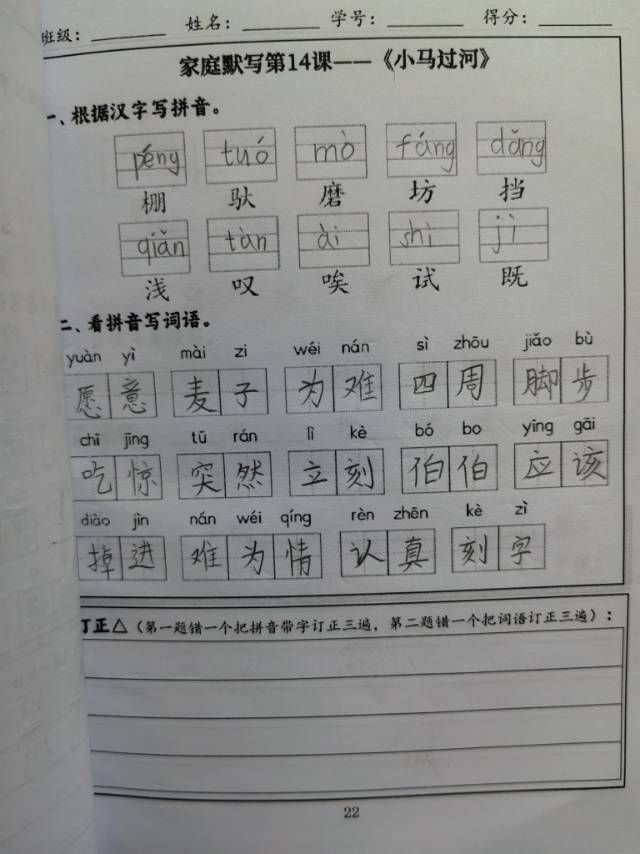 班级：________ 姓名：________ 学号：________ 得分：________
家庭默写第14课——《小马过河》
一、根据汉字写拼音。
péng tuó mò fáng dǎng
棚 驮 磨 坊 挡
qiǎn tàn ài shì jì
浅 叹 唉 试 既
二、看拼音写词语。
yuàn yì mài zi wéi nán sì zhōu jiǎo bù
愿意 麦子 为难 四周 脚步
chī jīng tū rán lì kè bó bo yīng gāi
吃惊 突然 立刻 伯伯 应该
diào jìn nán wéi qíng rèn zhēn kè zì
掉进 难为情 认真 刻字
订正△（第一题错一个把拼音带字订正三遍，第二题错一个把词语订正三遍）：
22